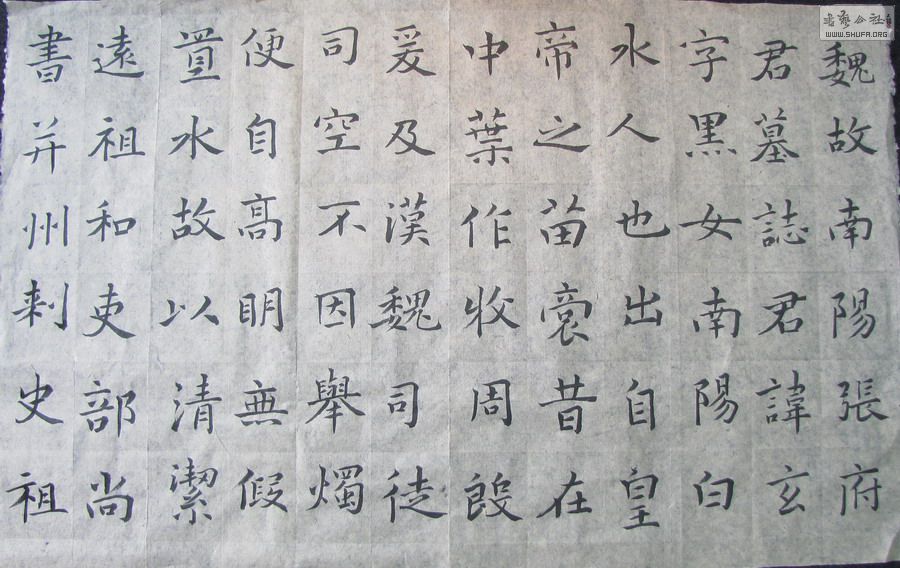 魏故南陽張府
君墓誌君諱玄
字黑女南陽白
水人也出自皇
帝之苗裔昔在
中葉作牧周殷
爰及漢魏司徒
司空不因舉燭
便自高明無假
置水故以清潔
遠祖和吏部尚
書并州刺史祖
書藝公社
WWW.SHUFA.ORG